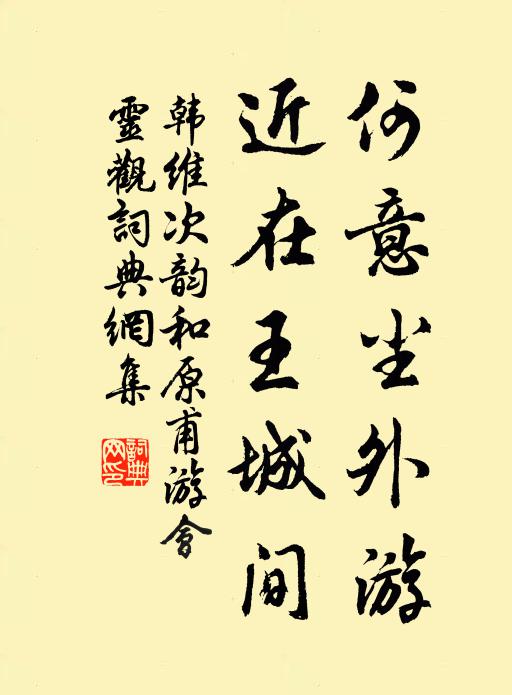 何意尘外游
近在王城间
韩维次韵和原甫游会
靈觀詞典網集
詞典网印